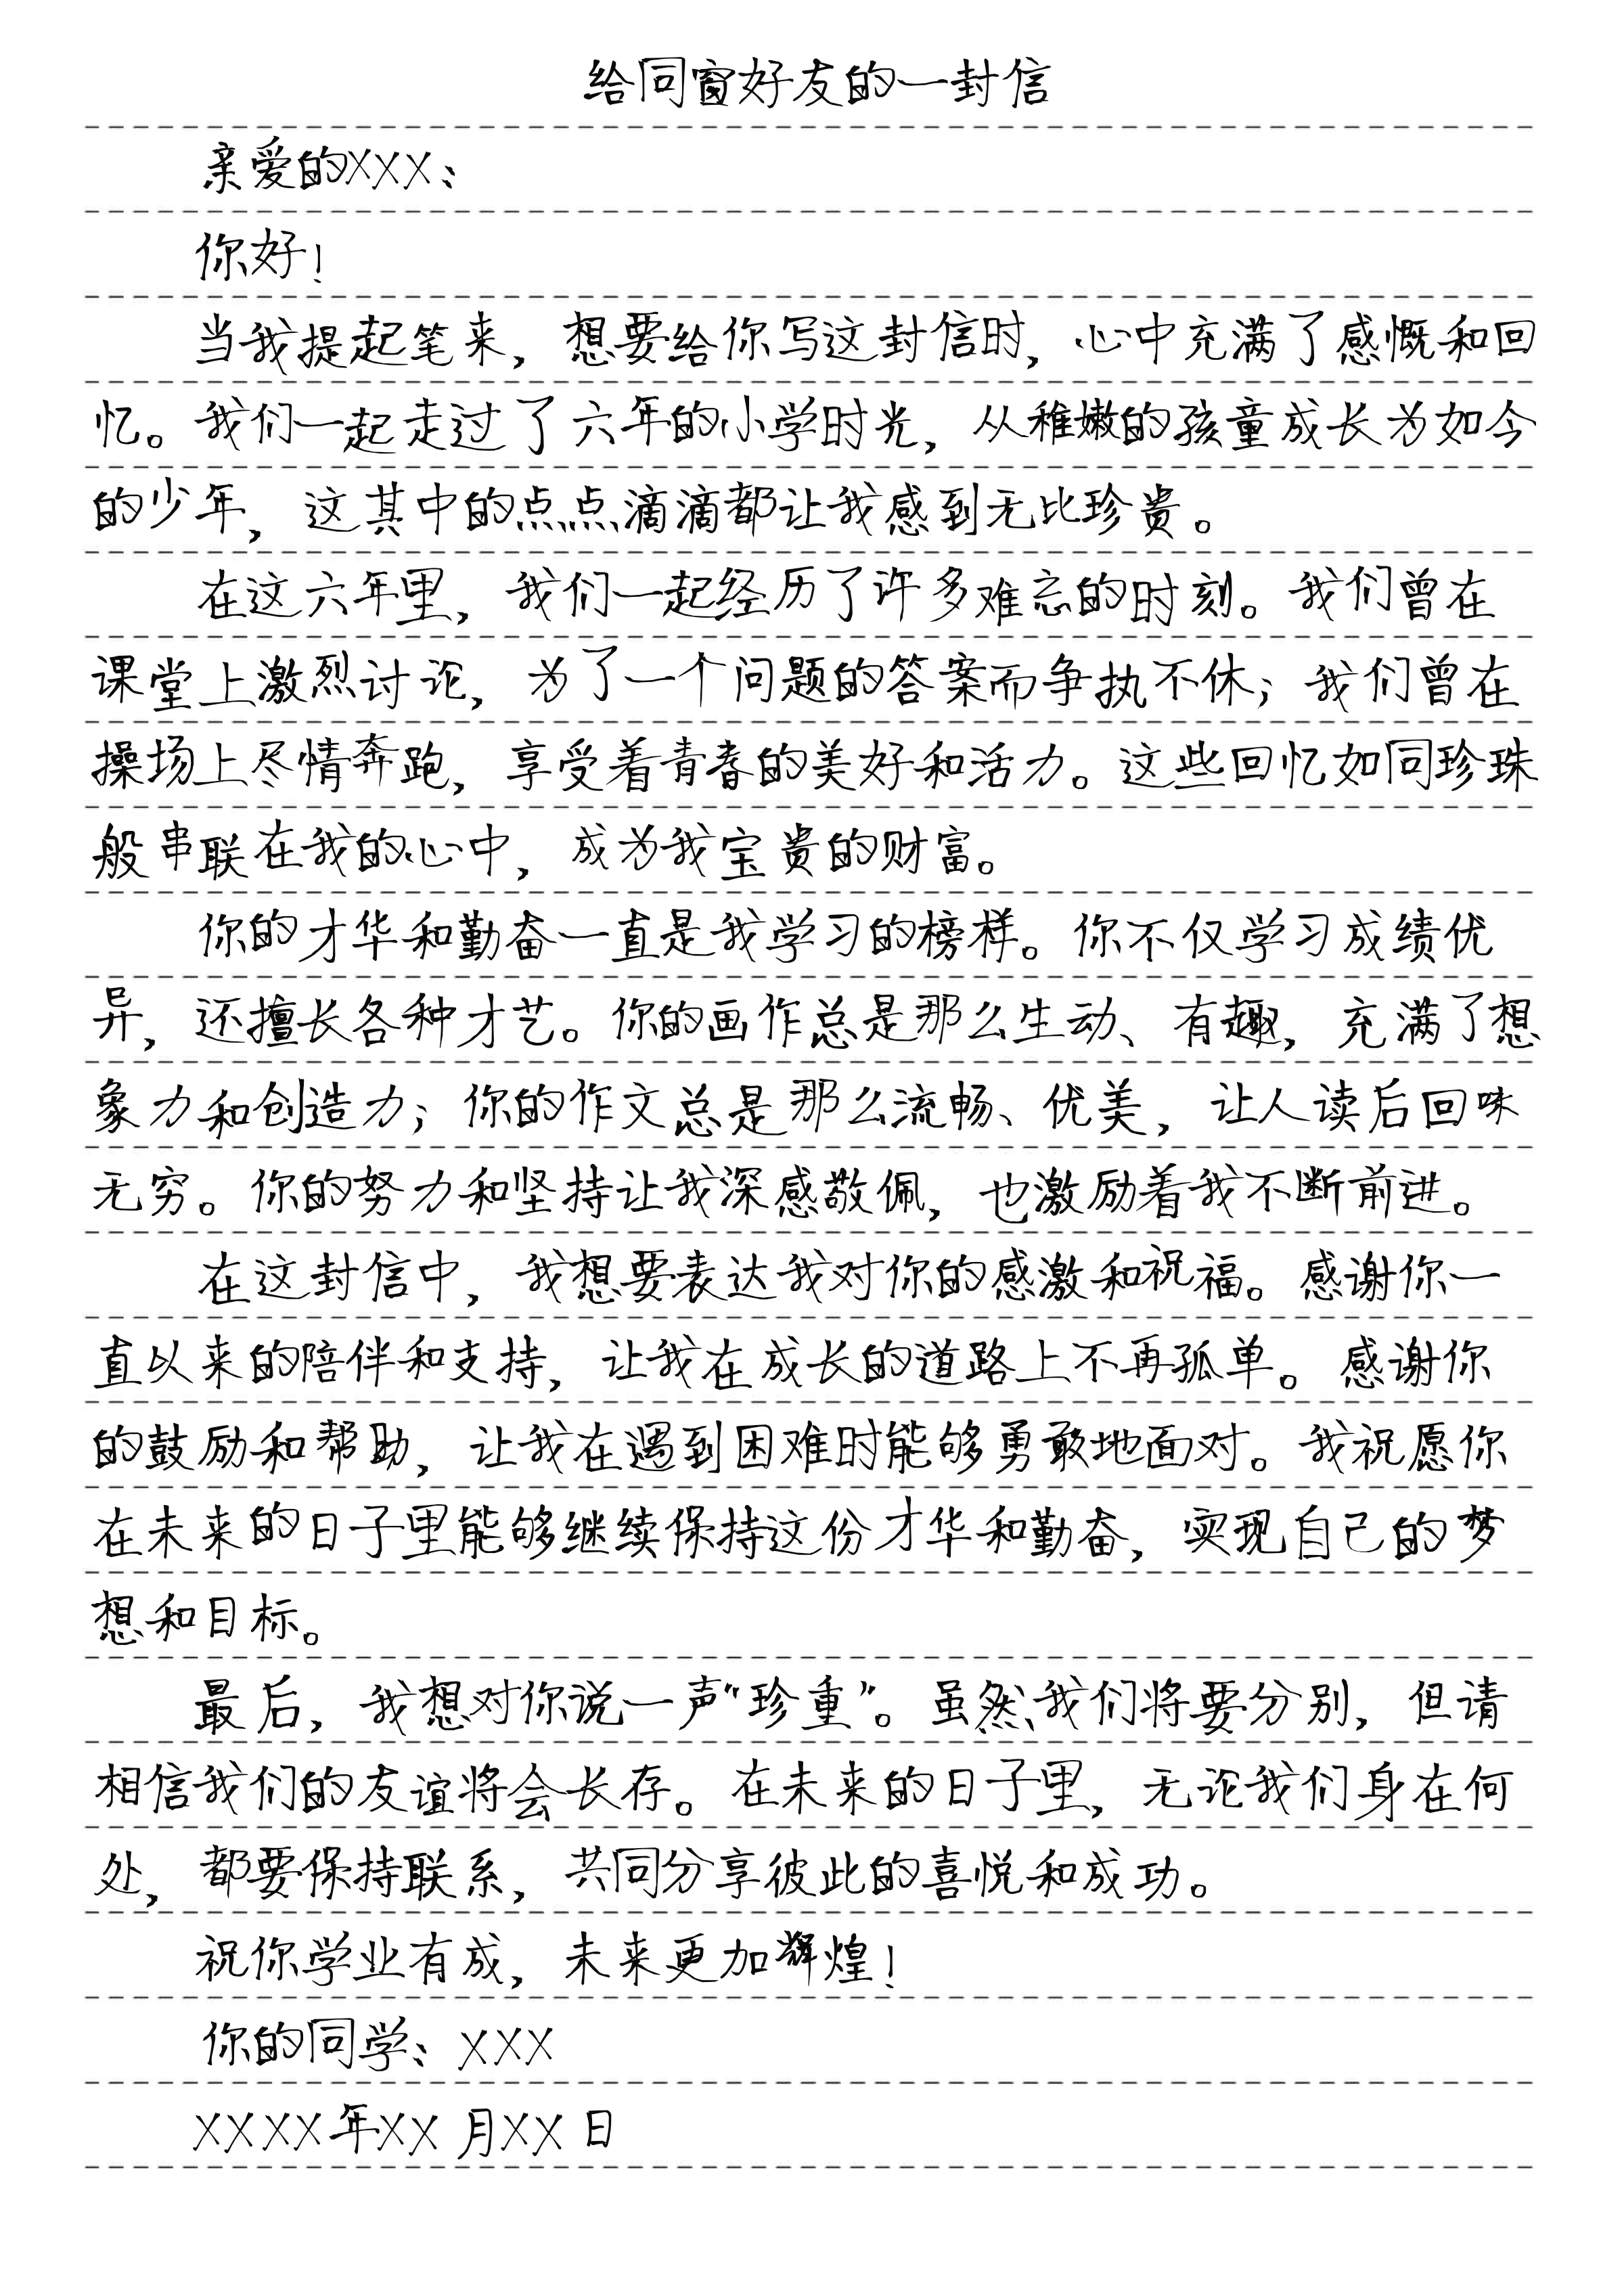 给同窗好友的一封信
亲爱的XXX：
你好！
当我提起笔来，想要给你写这封信时，心中充满了感慨和回
忆。我们一起走过了六年的小学时光，从稚嫩的孩童成长为如今
的少年，这其中的点点滴滴都让我感到无比珍贵。
在这六年里，我们一起经历了许多难忘的时刻。我们曾在
课堂上激烈讨论，为了一个问题的答案而争执不休；我们曾在
操场上尽情奔跑，享受着青春的美好和活力。这些回忆如同珍珠
般串联在我的心中，成为我宝贵的财富。
你的才华和勤奋一直是我学习的榜样。你不仅学习成绩优
异，还擅长各种才艺。你的画作总是那么生动、有趣，充满了想
象力和创造力；你的作文总是那么流畅、优美，让人读后回味
无穷。你的努力和坚持让我深感敬佩，也激励着我不断前进。
在这封信中，我想要表达我对你的感激和祝福。感谢你一
直以来的陪伴和支持，让我在成长的道路上不再孤单。感谢你
的鼓励和帮助，让我在遇到困难时能够勇敢地面对。我祝愿你
在未来的日子里能够继续保持这份才华和勤奋，实现自己的梦
想和目标。
最后，我想对你说一声“珍重”。虽然我们将要分别，但请
相信我们的友谊将会长存。在未来的日子里，无论我们身在何
处，都要保持联系，共同分享彼此的喜悦和成功。
祝你学业有成，未来更加辉煌！
你的同学：XXX
XXXX年XX月XX日